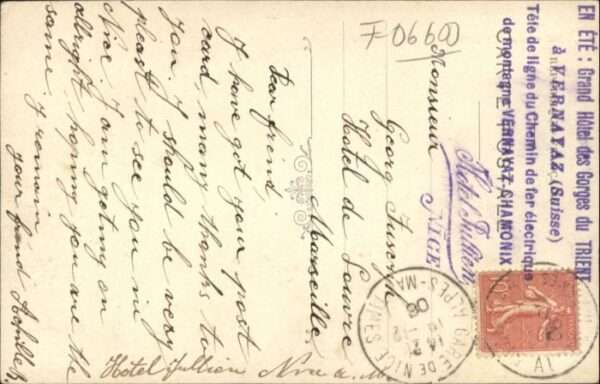 Dear friend,
I have got your post
card, many thanks to
you. I should be very
pleast to see you in
Nice. I am getting on
allright, hoping you are the
same. I remain
your friend
Hotel Jullien Nice a. M.
Monsieur
Georg
Hotel de Louvre
Marseille
F0660
Hotel Jullien
NICE
EN ÉTÉ: Grand Hôtel des Gorges du TRIENT
à VERNAYAZ (Suisse)
Tête de ligne du Chemin de fer électrique
de montagne VERNAYAZ-CHAMONIX
CARTE POSTALE
GARE DE NICE
ALPES-MARITIMES
08